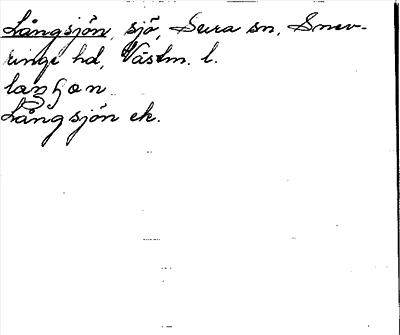 Långsjön, sjö, Sura sn, Snev-
ringe hd, Västm. l.
laŋʃøn
Långsjön ek.